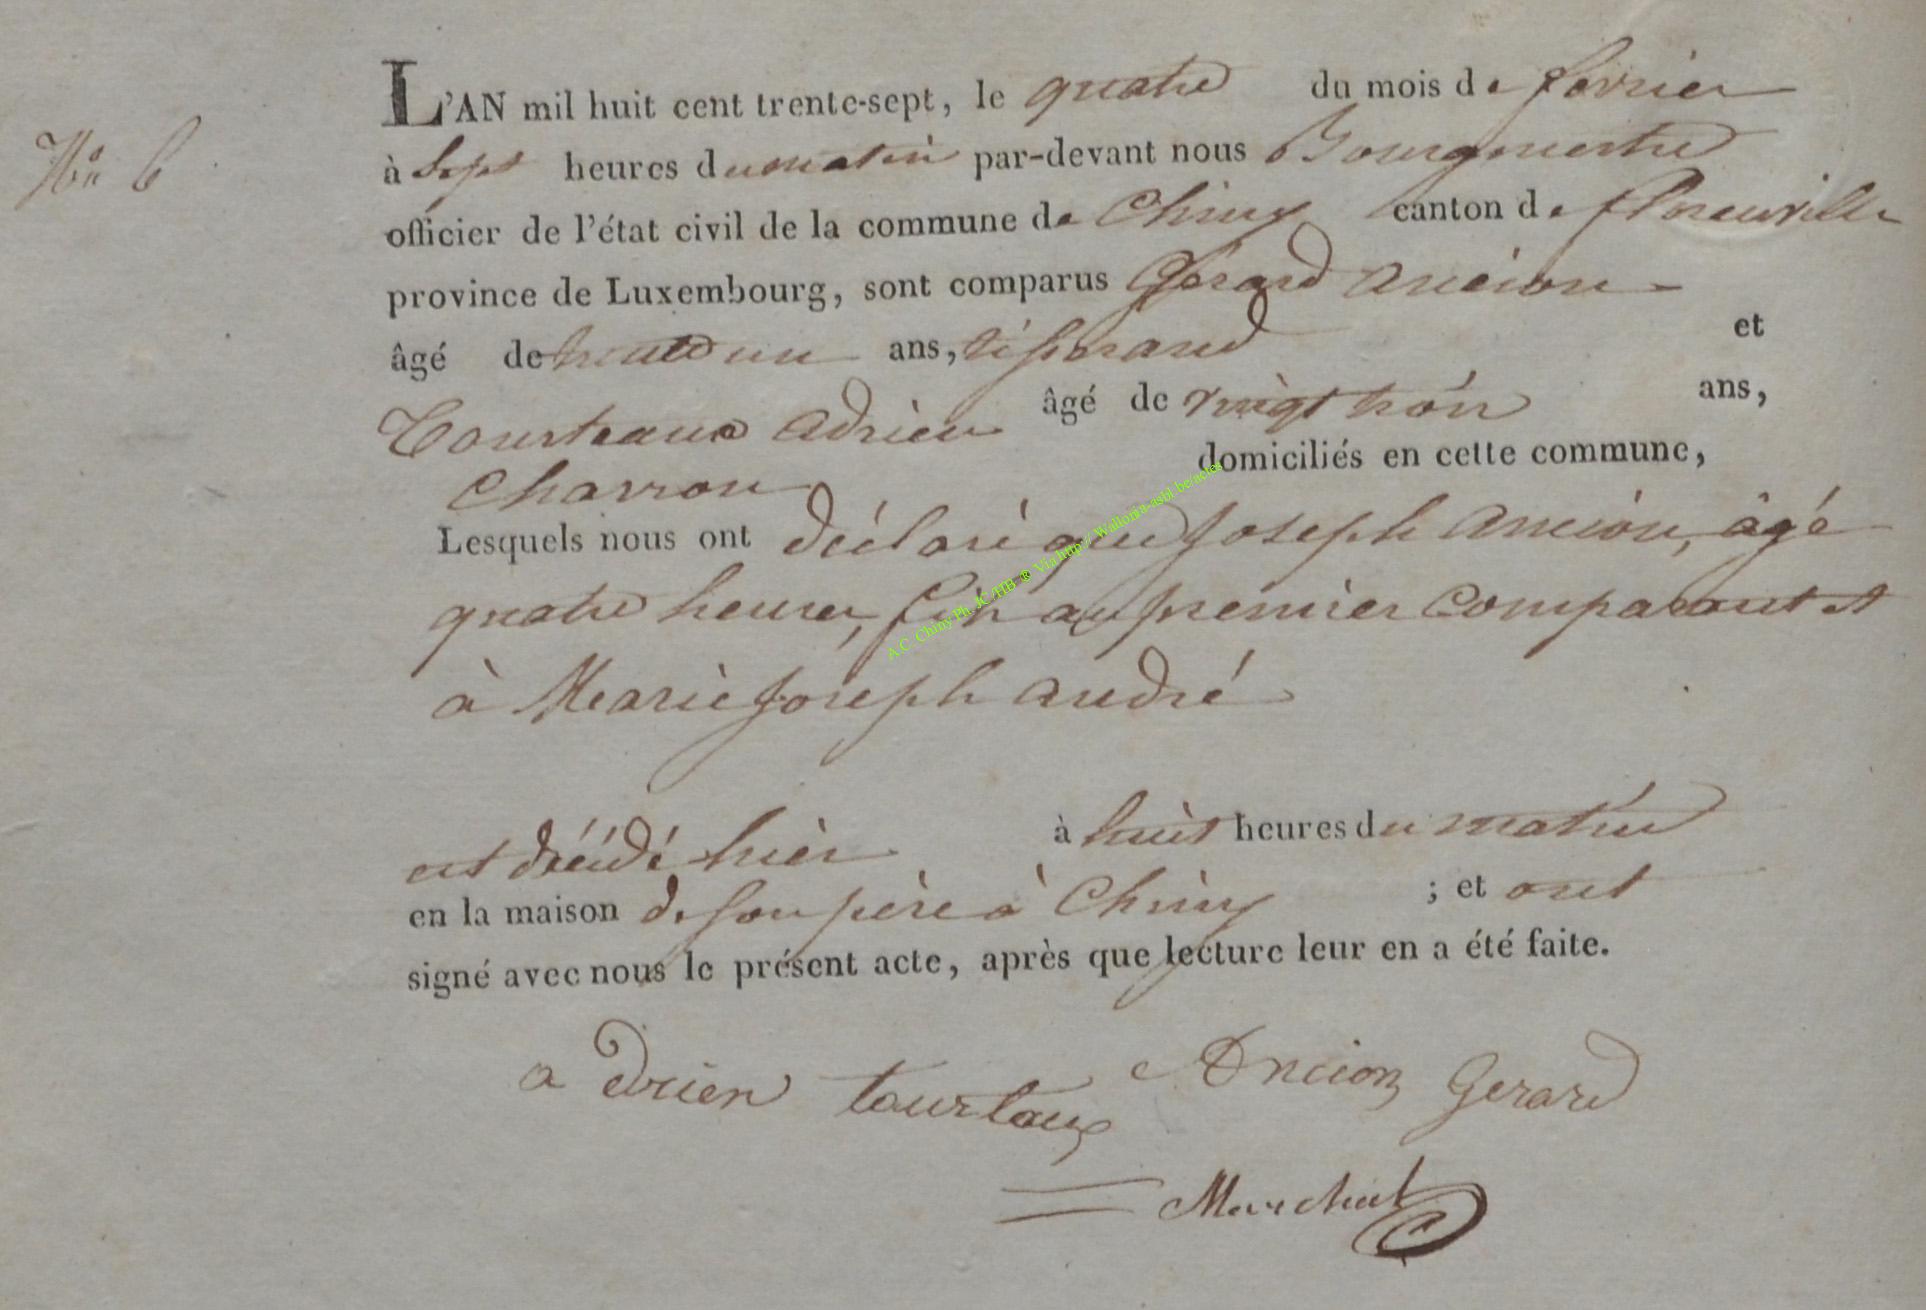 No 6
L'AN mil huit cent trente-sept, le quatre du mois de fevrier
à Sept heures du matin par-devant nous Bourgmestre
officier de l'état civil de la commune de Chiny canton de florenville
province de Luxembourg, sont comparus Gérard Ancion
âgé de trente un ans, tisserand et
Tourteaux Adrien âgé de vingt trois ans,
Charron domiciliés en cette commune,
Lesquels nous ont déclaré que Joseph Ancion, âgé
quatre heures, fils au premier comparant et
à Marie Joseph André
est décédé hier à huit heures du matin
en la maison de son père à Chiny ; et ont
signé avec nous le présent acte, après que lecture leur en a été faite.
adrien tourtaux Ancion Gerard
Marchal
A.C. Chiny Ph. JC/HB ® Via http://Wallonia-asbl.be/actes